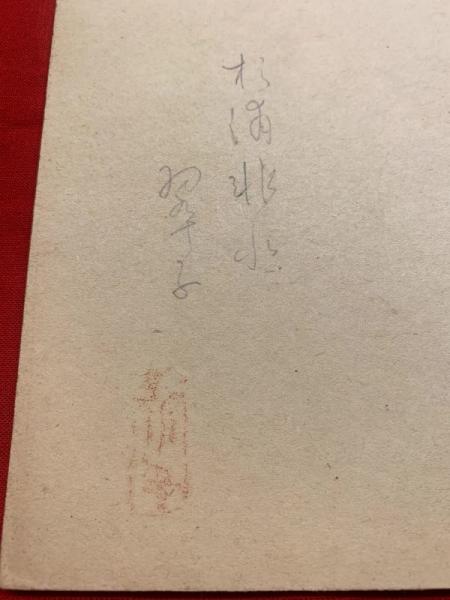 杉浦非水
翠子